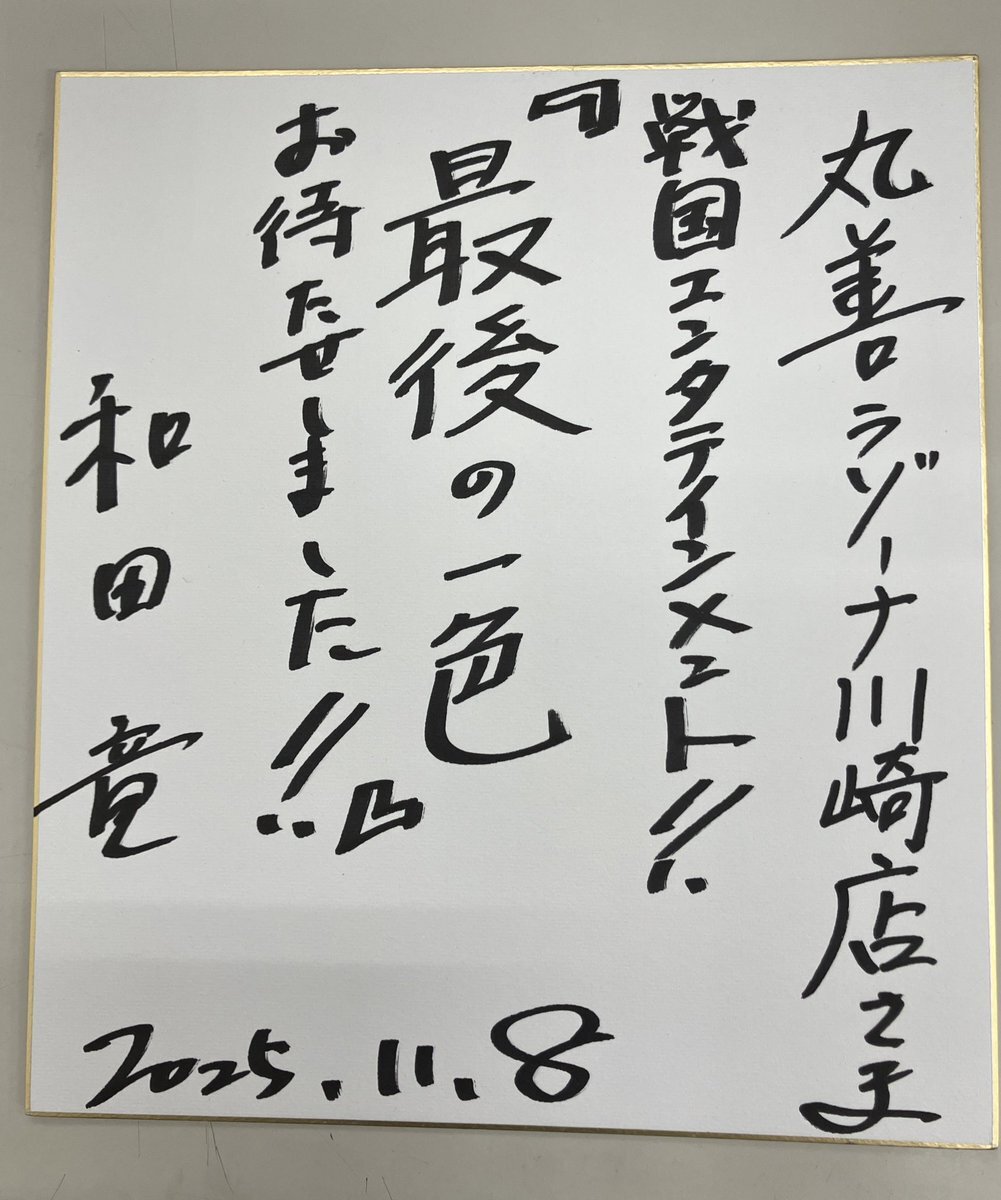 丸善ラゾーナ川崎店さま
戦国エンタテインメント!!
『最後の一色』
お待たせしました!!
和田竜
2025.11.8